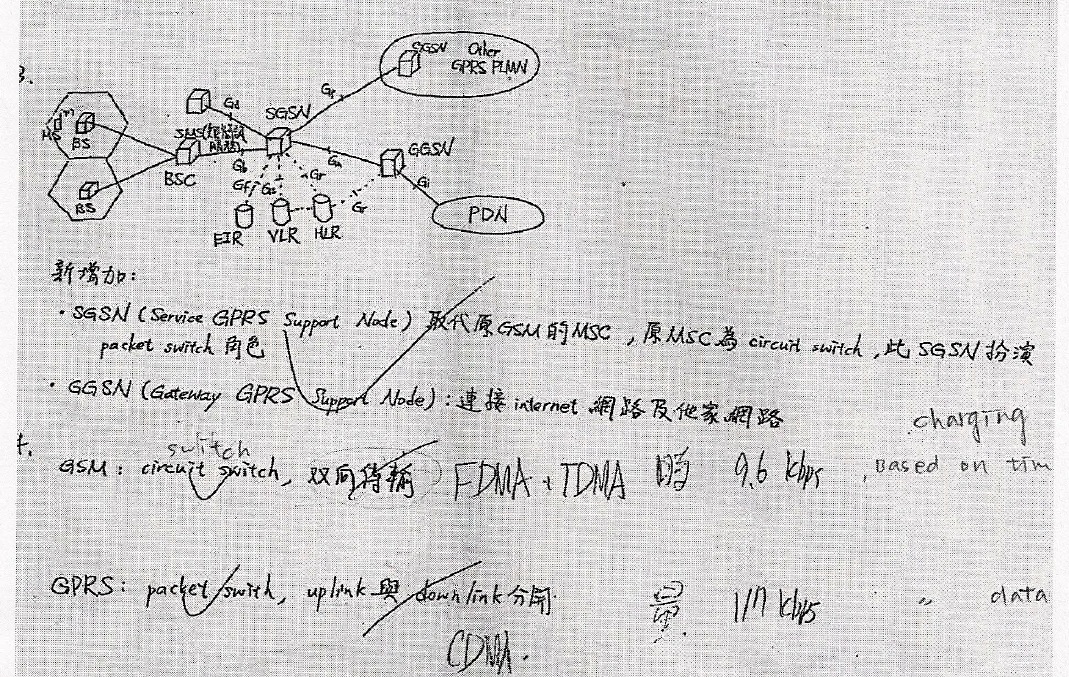 3.
SGSN Other
GPRS PLMN
Gp
Gd
SGSN
MS
BS
SMS(短訊
服務)
Gn
GGSN
Gb
BSC
Gf Gs Gr
Gi
BS
Gr
PDN
EIR VLR HLR
新增加:
· SGSN (Service GPRS Support Node) 取代原GSM的MSC, 原MSC為 circuit switch, 此 SGSN 扮演
packet switch 角色
· GGSN (Gateway GPRS Support Node): 連接 internet 網路及他家網路
charging
switch
GSM: circuit switch, 双向傳輸 FDMA + TDMA 時 9.6 kbps , Based on tim
GPRS: packet swith, uplink 與 downlink 分開. 量 117 kbps " data
CDMA.